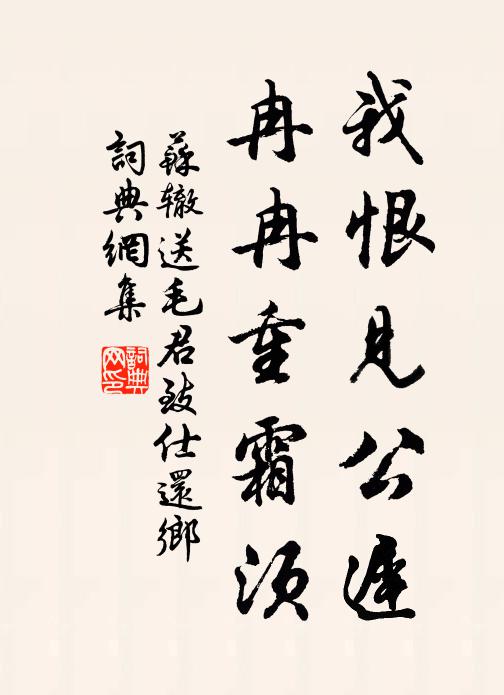 我恨見公遲
冉冉重霜須
蘇轍送毛君致仕還鄉
詞典網集
詞典网印